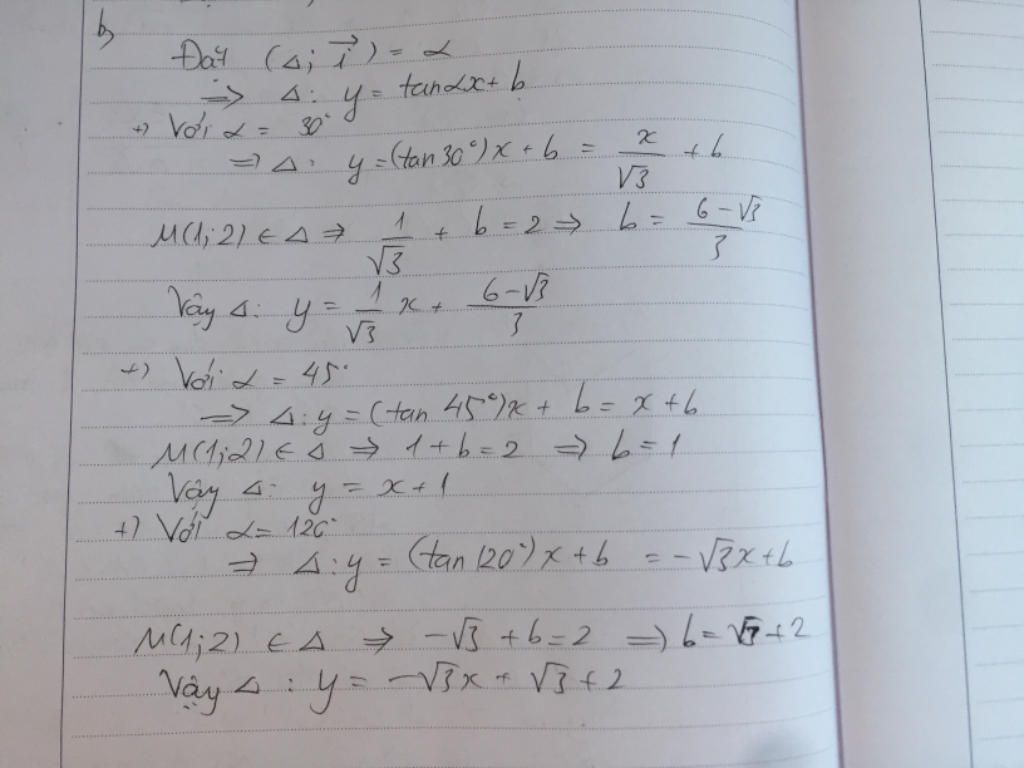 b,
Đặt (Δ; i⃗) = α
⇒ Δ: y = tanαx + b
+) Với α = 30°
⇒ Δ: y = (tan 30°)x + b = x/√3 + b
M(1;2) ∈ Δ ⇒ 1/√3 + b = 2 ⇒ b = (6-√3)/3
Vậy Δ: y = 1/√3 x + (6-√3)/3
+) Với α = 45°
⇒ Δ: y = (tan 45°)x + b = x + b
M(1;2) ∈ Δ ⇒ 1 + b = 2 ⇒ b = 1
Vậy Δ: y = x + 1
+) Với α = 120°
⇒ Δ: y = (tan 120°)x + b = -√3x + b
M(1;2) ∈ Δ ⇒ -√3 + b = 2 ⇒ b = √3 + 2
Vậy Δ: y = -√3x + √3 + 2